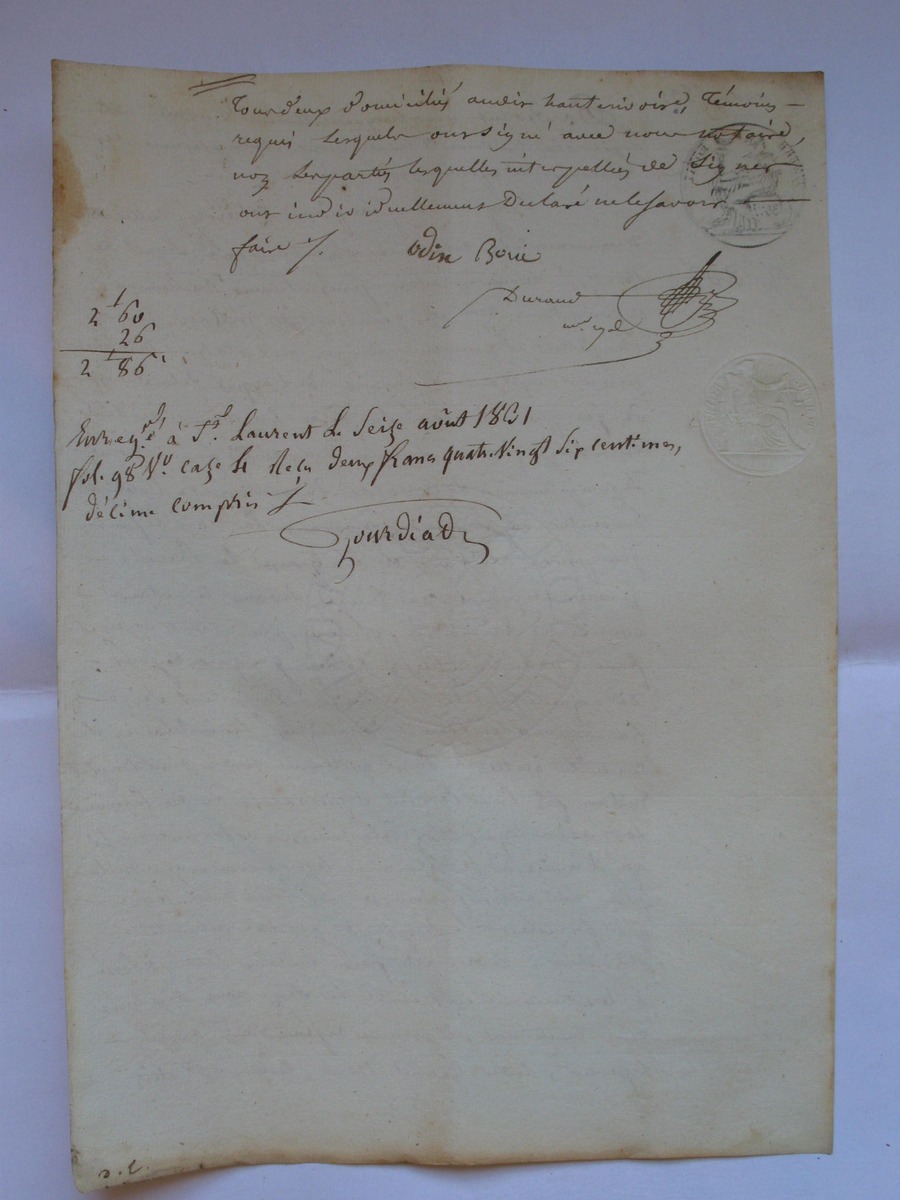 Tous deux domiciliés audit hauterivoire, Témoins
requis lesquels ont signé avec nous notaire,
non les parties lesquelles interpellées de signer
ont individuellement Déclaré ne le savoir
faire /.
odin Borie
Durand
nre
2 f 60
26
2 f 86 c
Enregré à St. Laurent le Seize août 1831
fol. 98 Vo. Case 4 Reçu deux francs quatre Vingt Six centimes,
décime compris
Gourdiat